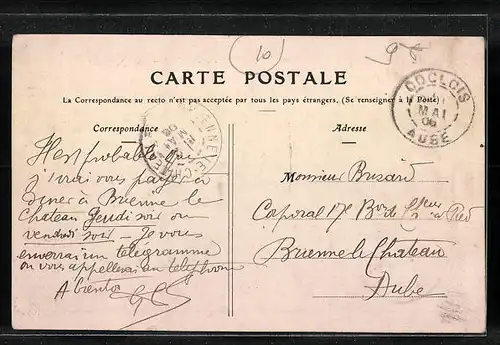 (10)
CARTE POSTALE
La Correspondance au recto n'est pas acceptée par tous les pays étrangers. (Se renseigner à la Poste)
Correspondance
Adresse
COCLOIS
MAI
AUBE
Il est probable que
j'irai vous payer à
dîner à Brienne le
Château Jeudi soir ou
vendredi soir — Je vous
enverrai un télégramme
ou vous appellerai au téléphone
A bientôt
Monsieur Buzard
Caporal 17e Bon à Pied
Brienne le Chateau
Aube